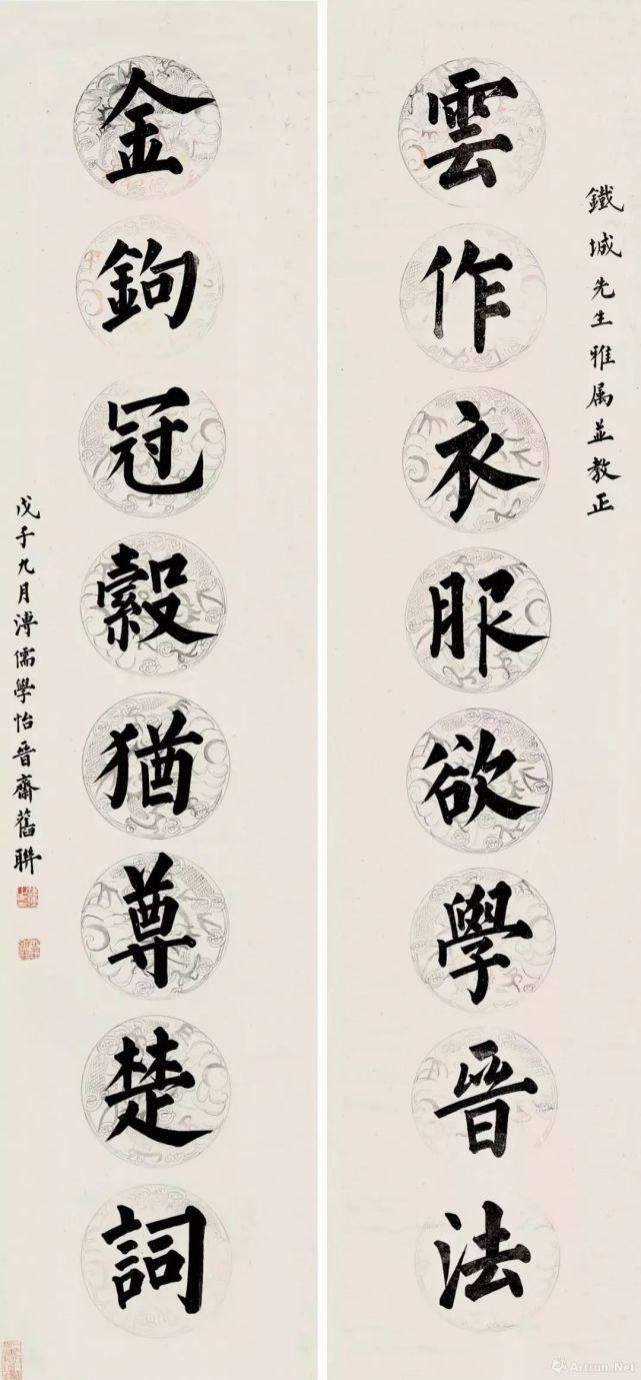 鐵城先生雅属並教正
雲作衣服欲學晉法
金鉤冠縠猶尊楚詞
戊子九月溥儒學怡晉齋舊聯
Artron.Net